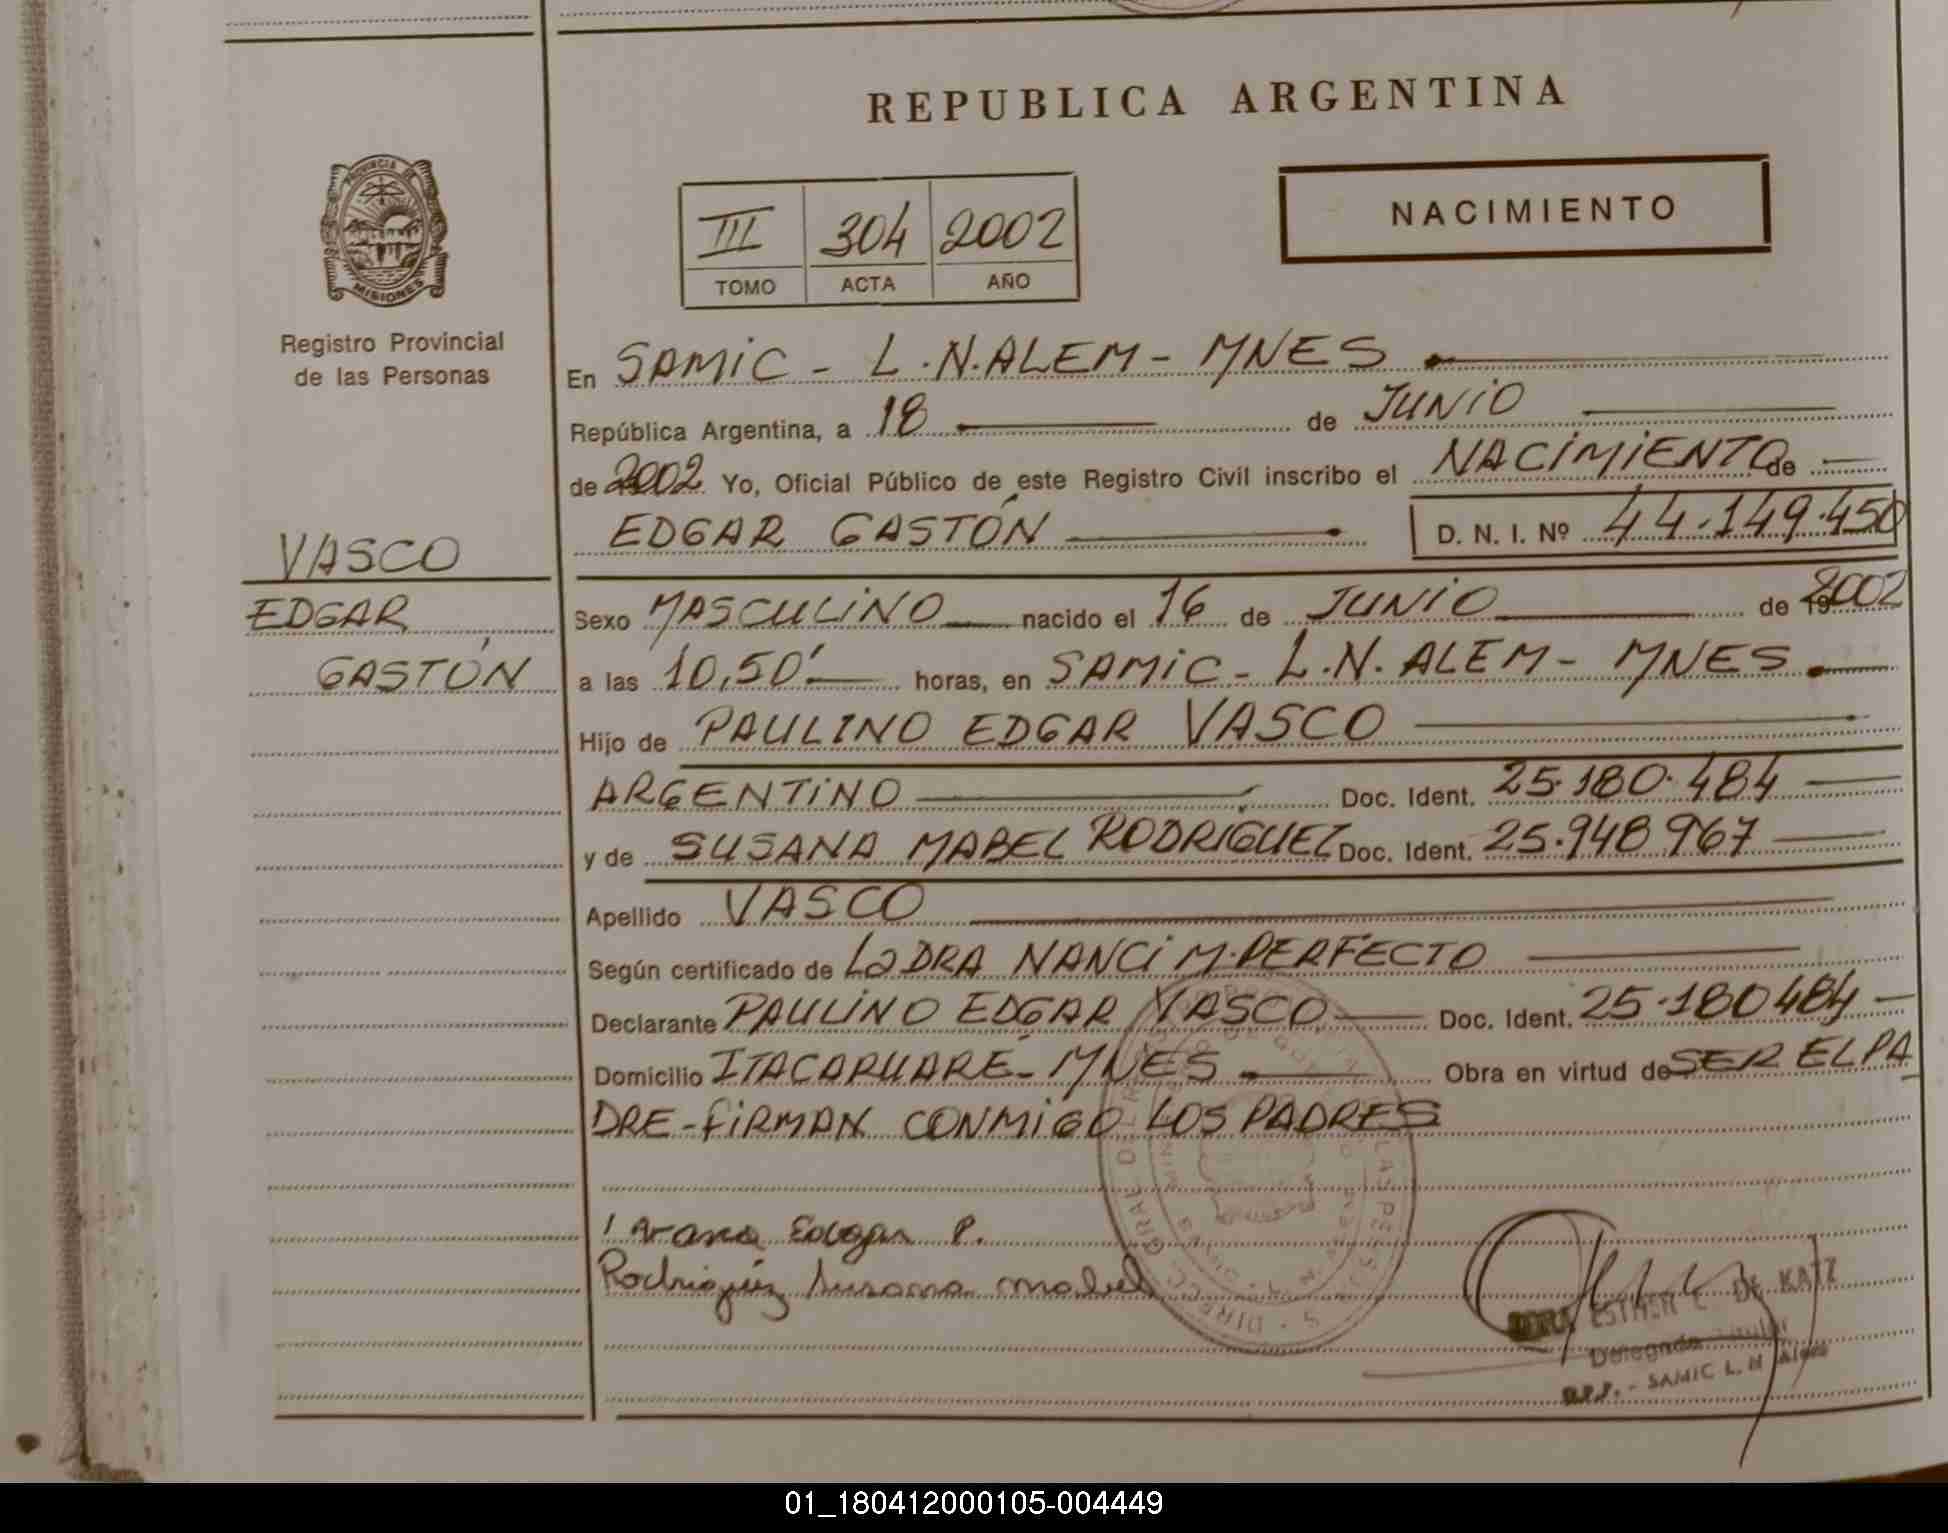 REPUBLICA ARGENTINA
PROVINCIA DE
MISIONES
Registro Provincial
de las Personas
NACIMIENTO
III 304 2002
TOMO ACTA AÑO
En SAMIC - L.N.ALEM - MNES
República Argentina, a 18 de JUNIO
de 2002 Yo, Oficial Público de este Registro Civil inscribo el NACIMIENTO de
EDGAR GASTÓN D. N. I. Nº 44.149.450
VASCO
EDGAR
GASTÓN
Sexo MASCULINO nacido el 16 de JUNIO de 2002
a las 10,50' horas, en SAMIC - L.N. ALEM - MNES.
Hijo de PAULINO EDGAR VASCO
ARGENTINO Doc. Ident. 25.180.484
y de SUSANA MABEL RODRÍGUEZ Doc. Ident. 25.948.967
Apellido VASCO
Según certificado de LA DRA NANCI M. PERFECTO
Declarante PAULINO EDGAR VASCO Doc. Ident. 25.180484
Domicilio ITACARUARE - MNES Obra en virtud de SER EL PA
DRE - FIRMAN CONMIGO LOS PADRES
Vasco Edgar P.
Rodriguez Susana Mabel
ESTHER E. DE KATZ
Delegada Titular
R.P.P. - SAMIC L. N. Alem
01_180412000105-004449